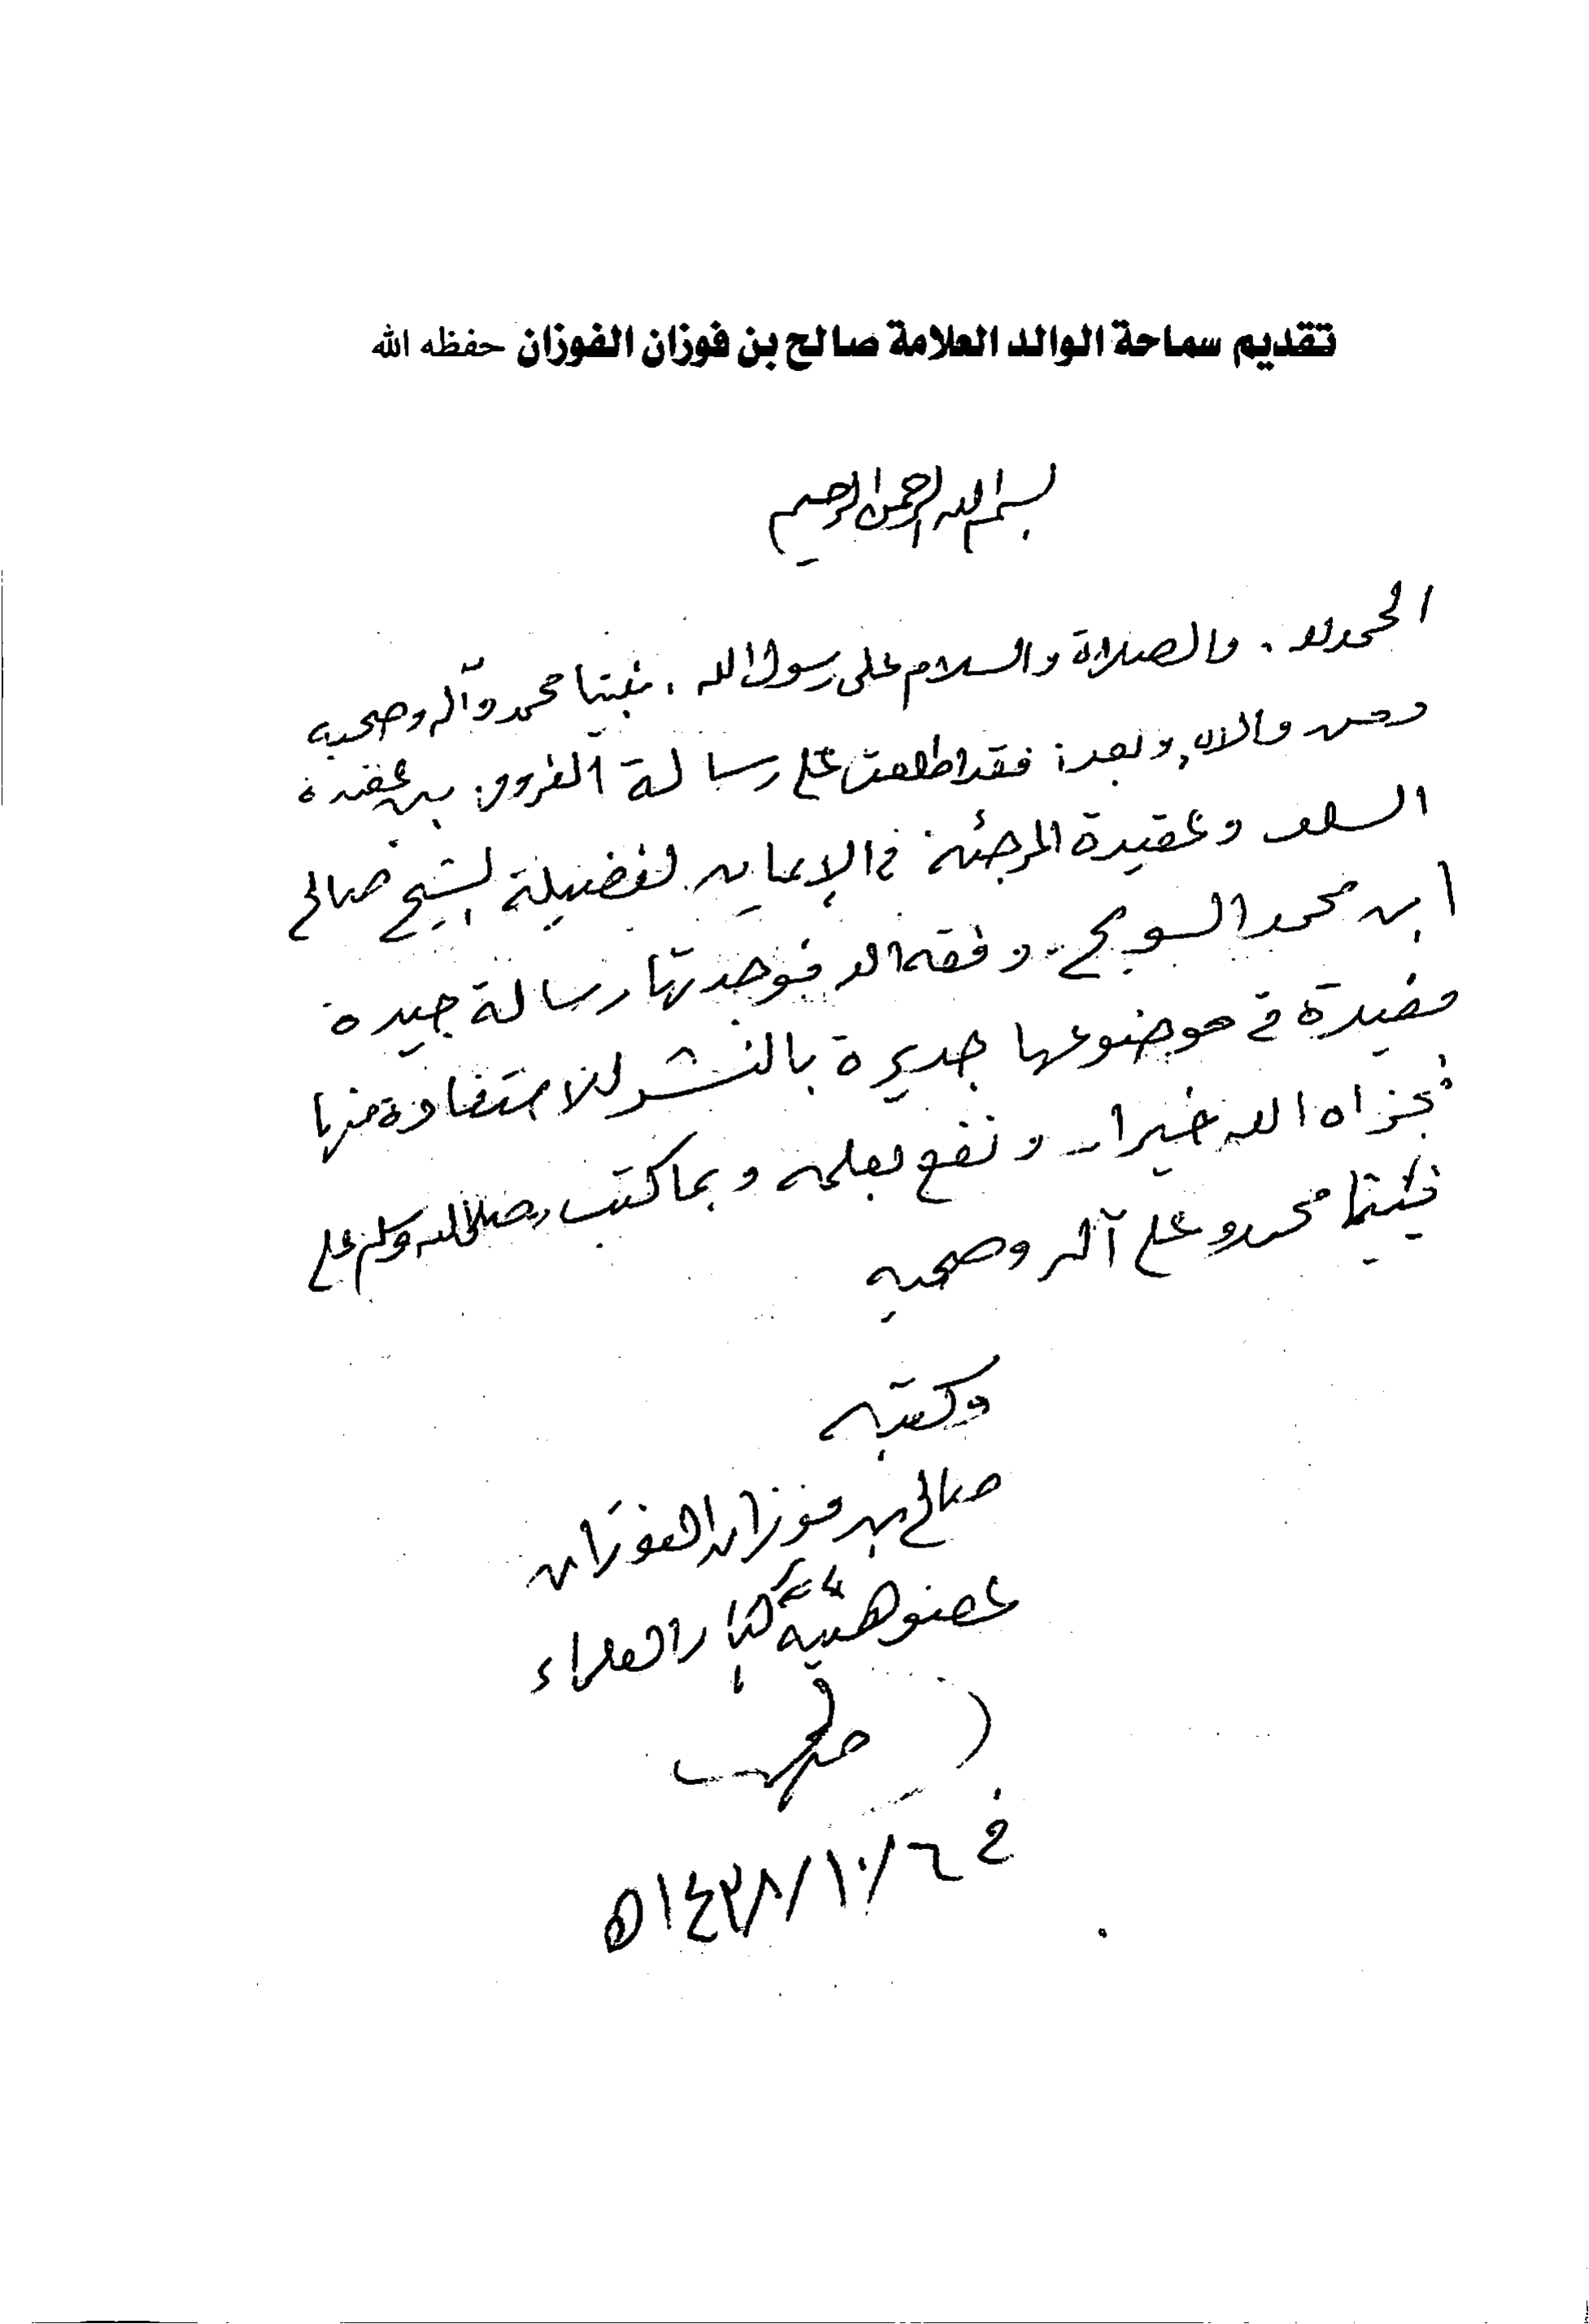 تقديم سماحة الوالد العلامة صالح بن فوزان الفوزان حفظه الله
بسم الله الرحمن الرحيم
الحمد لله . والصلاة والسلام على رسول الله . نبينا محمد وآله وصحبه
ومن والاه وبعد : فقد اطلعت على رسالة الفروق بين عقيدة
السلف وعقيدة المرجئة في الإيمان لفضيلة الشيخ صالح
ابن محمد السويح . وفقه الله فوجدتها رسالة جيدة
مفيدة في موضوعها جديرة بالنشر للاستفادة منها
فجزاه الله خيرا . ونفع بعلمه وبما كتب وصلى الله وسلم على
نبينا محمد وعلى آله وصحبه
وكتبه
صالح بن فوزان الفوزان
عضو هيئة كبار العلماء
في ٦/١٠/١٤٣٨ه